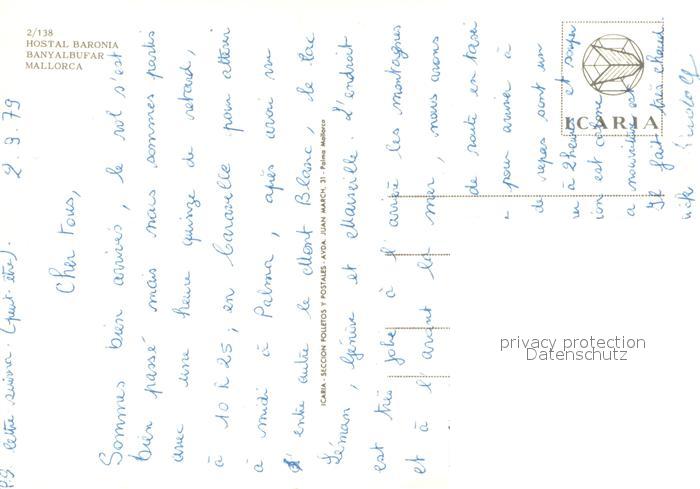 2/138
HOSTAL BARONIA
BANYALBUFAR
MALLORCA
2.9.79
Cher tous,
Sommes bien arrivés, le vol s'est
bien passé mais nous sommes partis
avec une heure quinze de retard,
à 10 h 25 ; en Caravelle pour atterir
à midi à Palma, après avoir vu
entre autre le Mont Blanc, le lac
Léman, Genève et Marseille. L'endroit
est très joli à l'arrière les montagnes
et à l'avant la mer, nous avons
de route en taxi
pour arriver à
de repas sont un
à 2 heures et souper
ion est
a nourriture est
Il fait très chaud.
PS lettre suivra. (peut-être).
ICARIA - SECCION FOLLETOS Y POSTALES - AVDA. JUAN MARCH, 31 - Palma Mallorca
ICARIA
privacy protection
Datenschutz